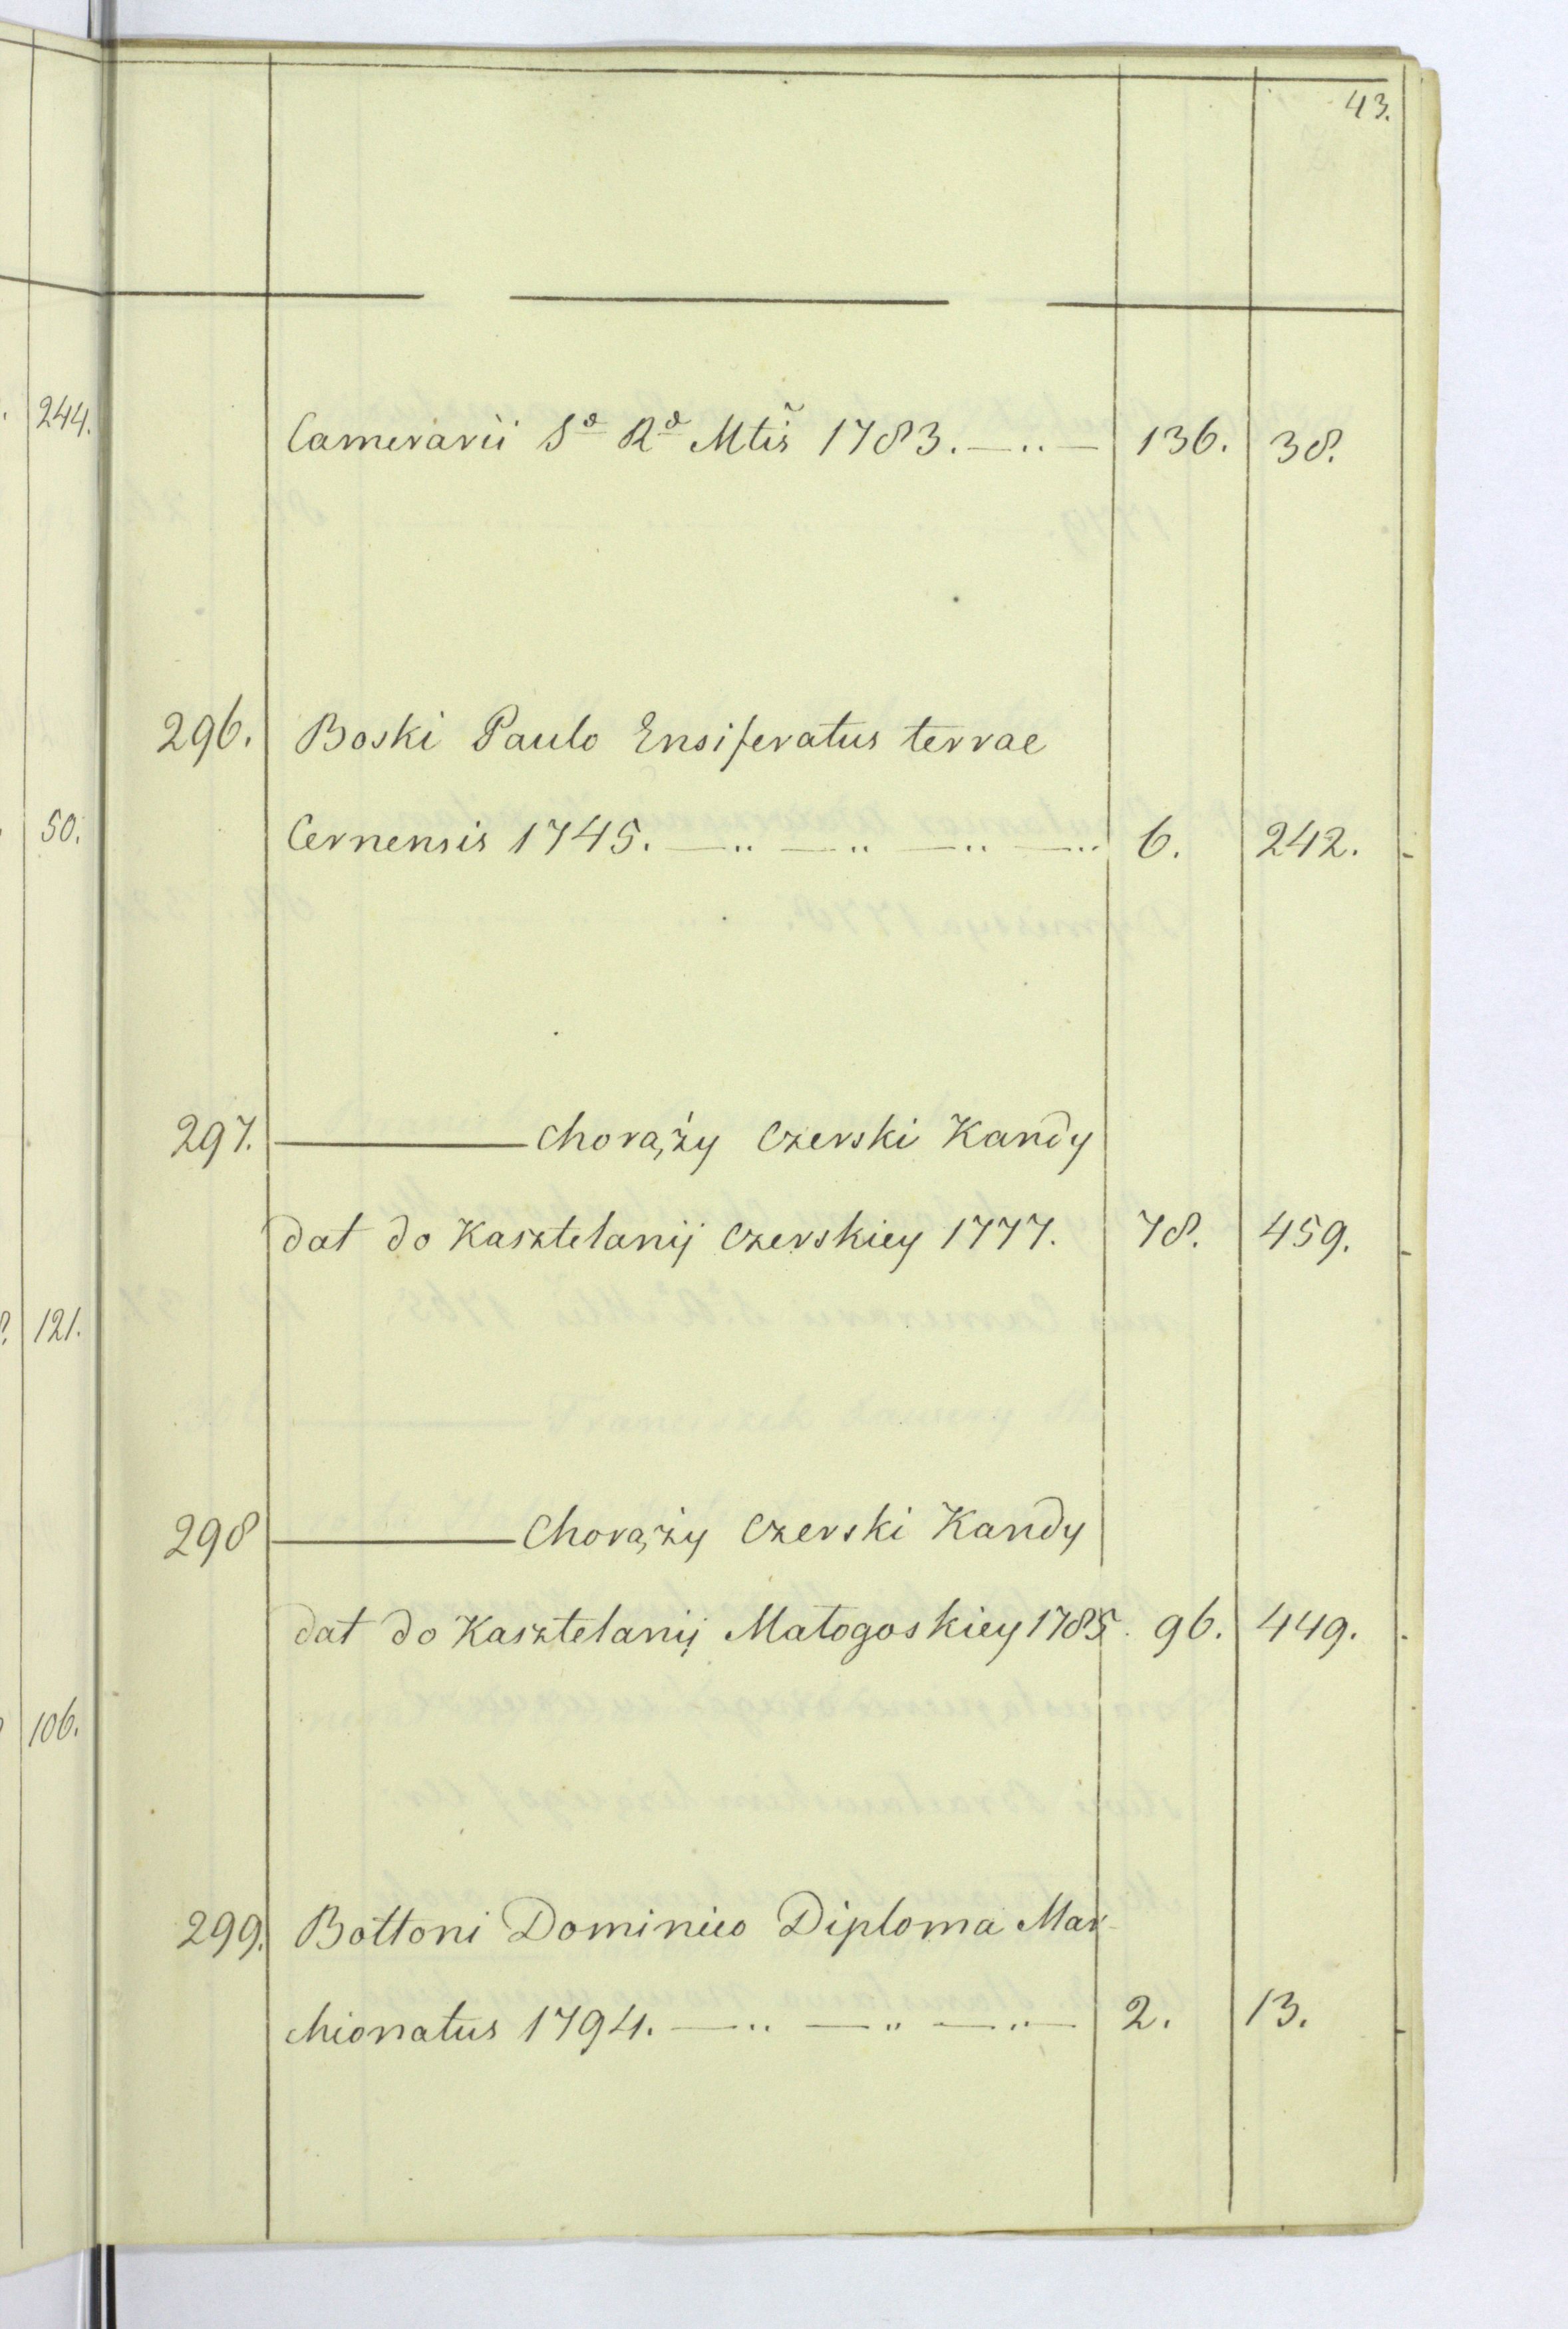 43.
244.
Camerarii Sæ Ræ Mtis̃ 1783. — .. — 136. 38.
296. Boski Paulo Ensiferatus terrae
50.
Cernensis 1745. — .. — .. — .. — .. 6. 242.
297. ——— Chorąży Czerski Kandy
dat do Kasztelanij Czerskiey 1777. 78. 459.
121.
298 ——— Chorąży Czerski Kandy
dat do Kasztelanij Małogoskiey 1785. 96. 449.
106.
299. Bottoni Dominico Diploma Mar-
chionatus 1794. — .. — .. — .. — 2. 13.